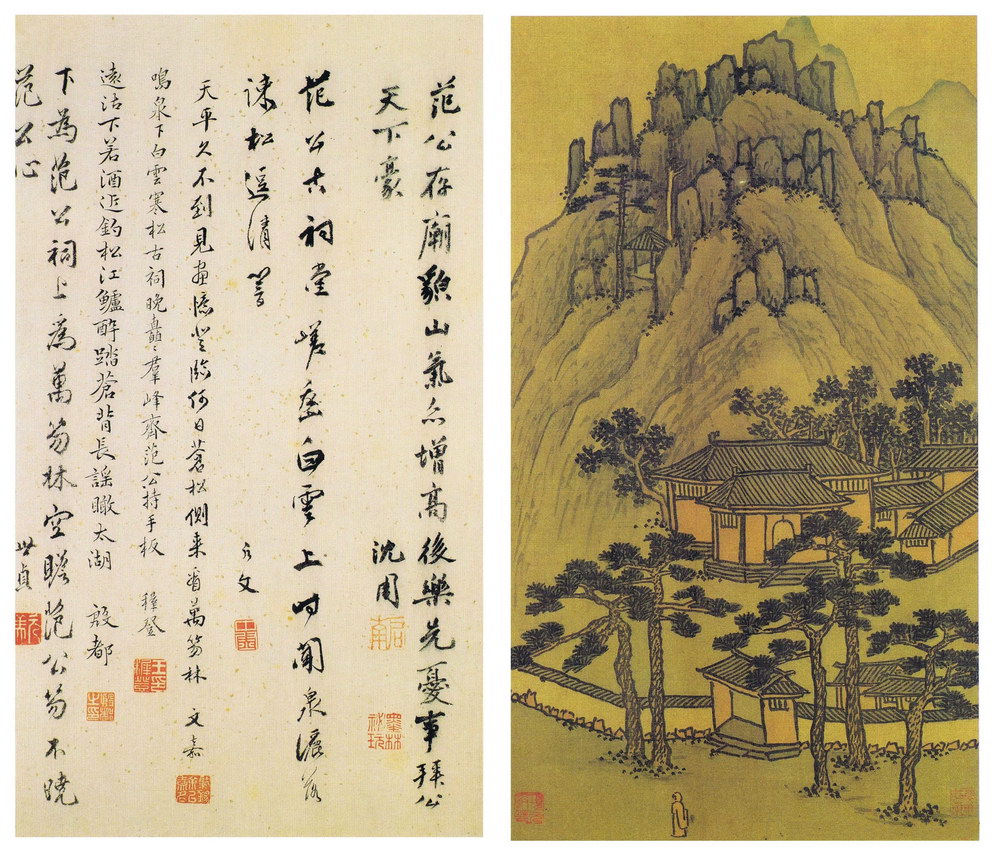 范公存廟貌山氣亦增高後樂先憂事拜公
天下豪 沈周
范公古祠堂嵯峨白雲上時聞泉瀑落
疎松逗清響 彭文
天平久不到見畫憶登臨何日蒼松側来看萬笏林 文嘉
鳴泉下白雲寒松古祠晚矗矗群峰齊范公持手板 穉登
遠沽下若酒近釣松江鱸醉踏蒼背長謠瞰太湖 殷都
下為范公祠上為萬笏林空瞻范公笏不曉
范公心 世貞